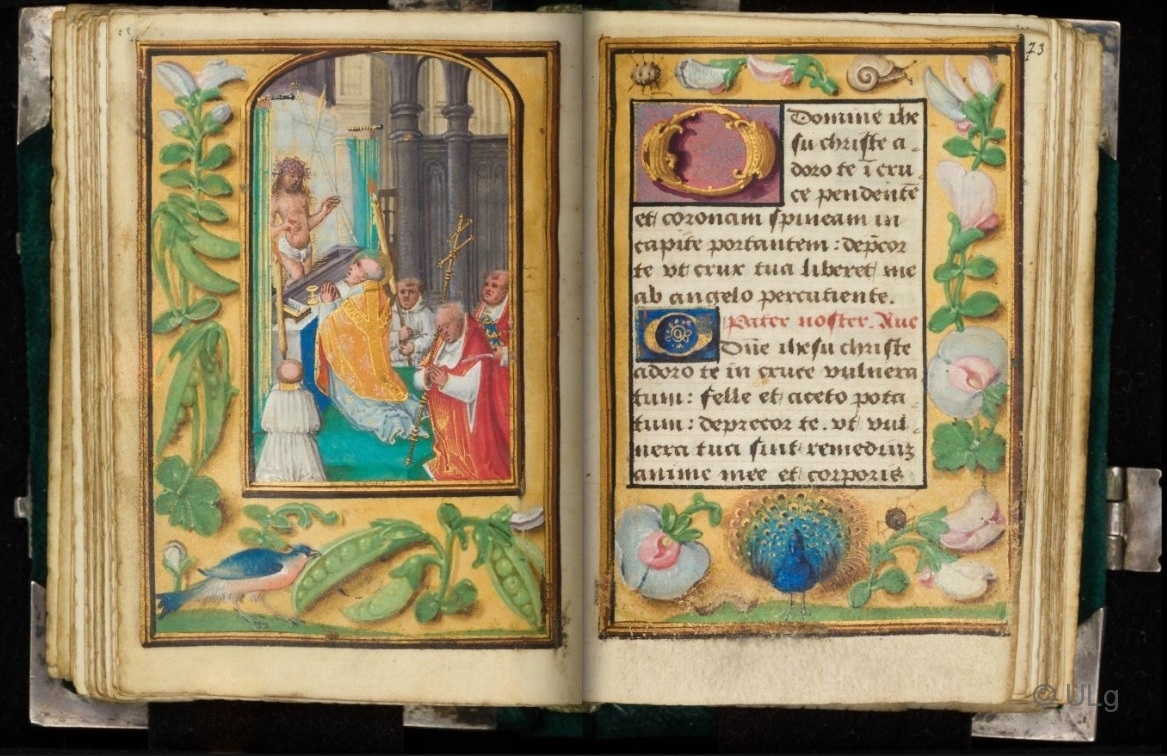 73
Domine ihe
su christe a
doro te i cru
ce pendentē
et coronam spineam in
capite portantem : dep̄cor
te vt crux tua liberet me
ab angelo percutiente.
Pater noster. Aue
Dn̄e ihesu christe
adoro te in cruce vulnera
tum : felle et aceto pota
tum : deprecor te. vt vul
nera tua sint remediuꝫ
anime mee et corporis
© ULg